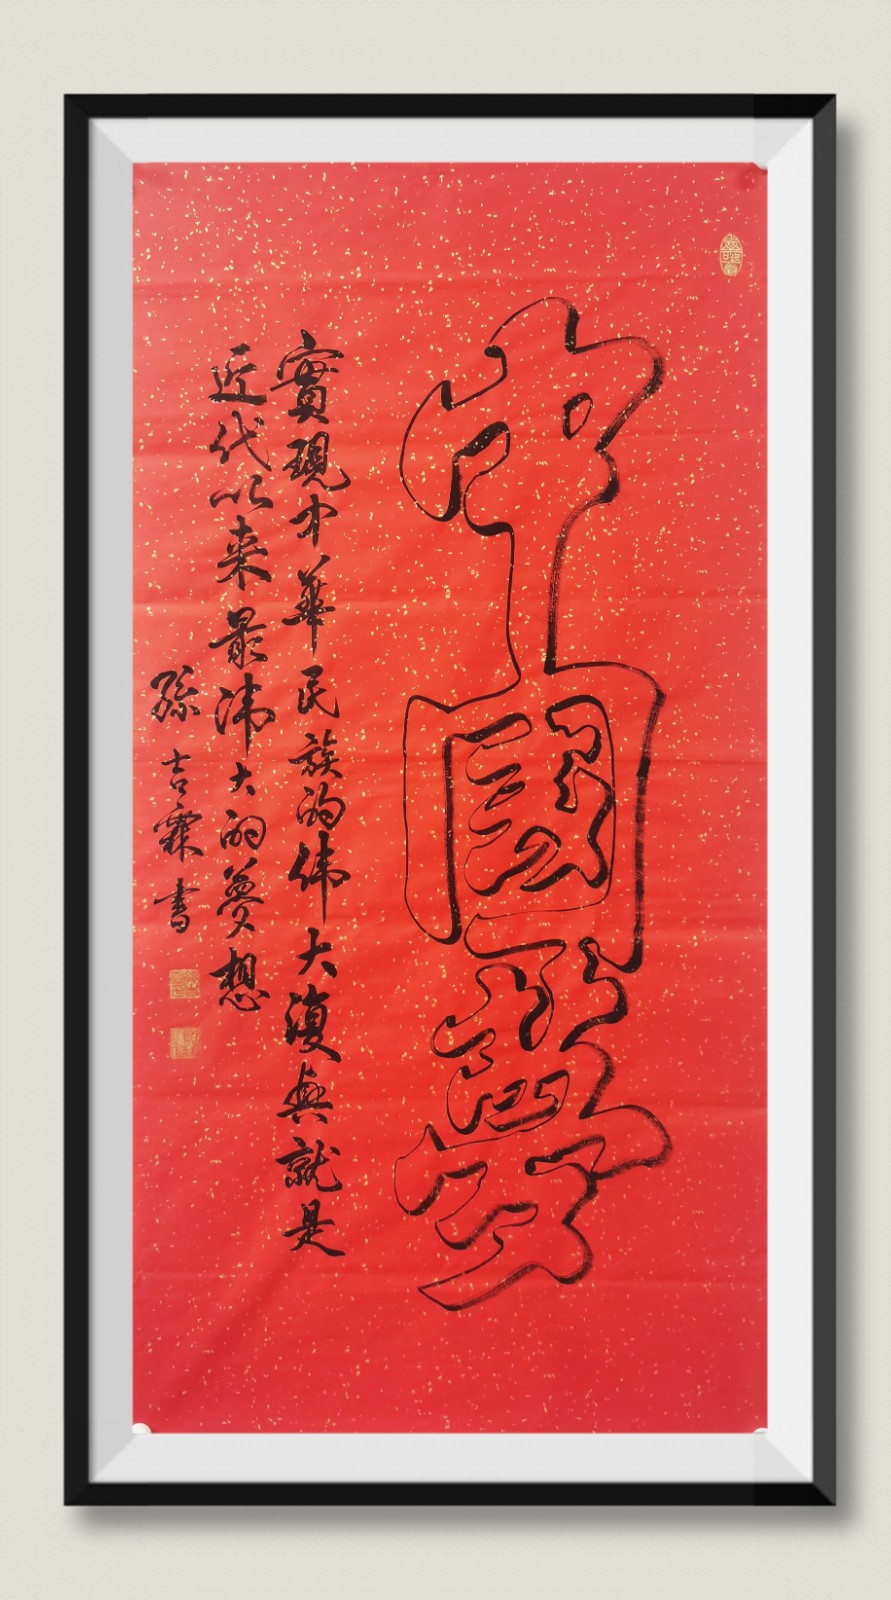 中國夢
實現中華民族的偉大復興就是
近代以来最偉大的夢想
孫吉霖書